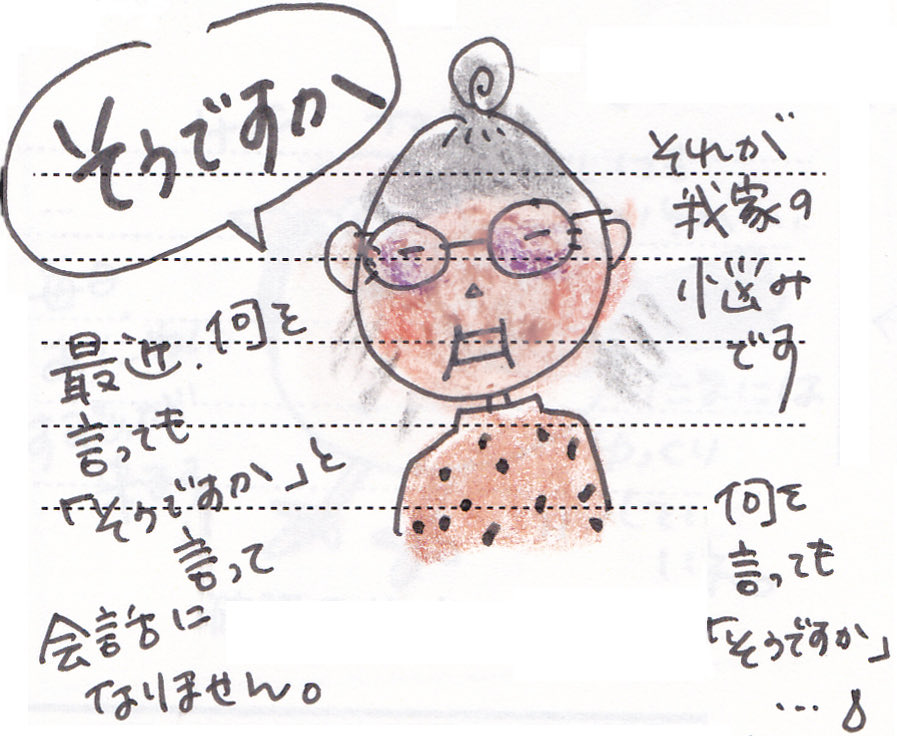 そうですか
最近、何を
言っても
「そうですか」と
言って
会話に
なりません。
それが
我家の
悩み
です
何を
言っても
「そうですか」
…